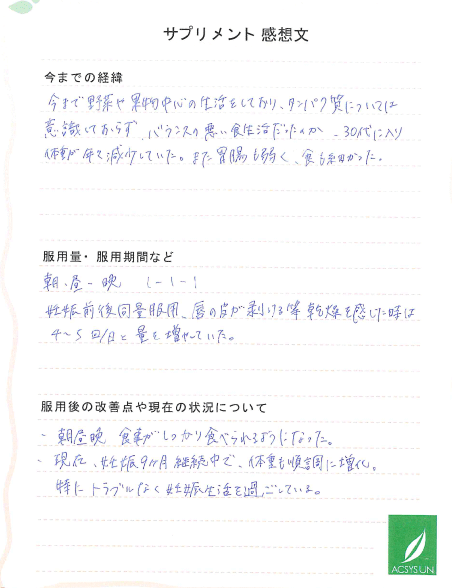 サプリメント 感想文
今までの経緯
今まで野菜や果物中心の生活をしており、タンパク質については
意識しておらず、バランスの悪い食生活だったのか、30代に入り
体重が年々減少していた。また胃腸も弱く、食も細かった。
服用量・服用期間など
朝・昼・晩 1-1-1
妊娠前後同量服用、唇の皮が剥ける等乾燥を感じた時は
4~5回/日と量を増やしていた。
服用後の改善点や現在の状況について
・朝昼晩 食事がしっかり食べられるようになった。
・現在、妊娠9ヶ月継続中で、体重も順調に増化。
特にトラブルなく妊娠生活を過ごしている。
ACSYSUNI